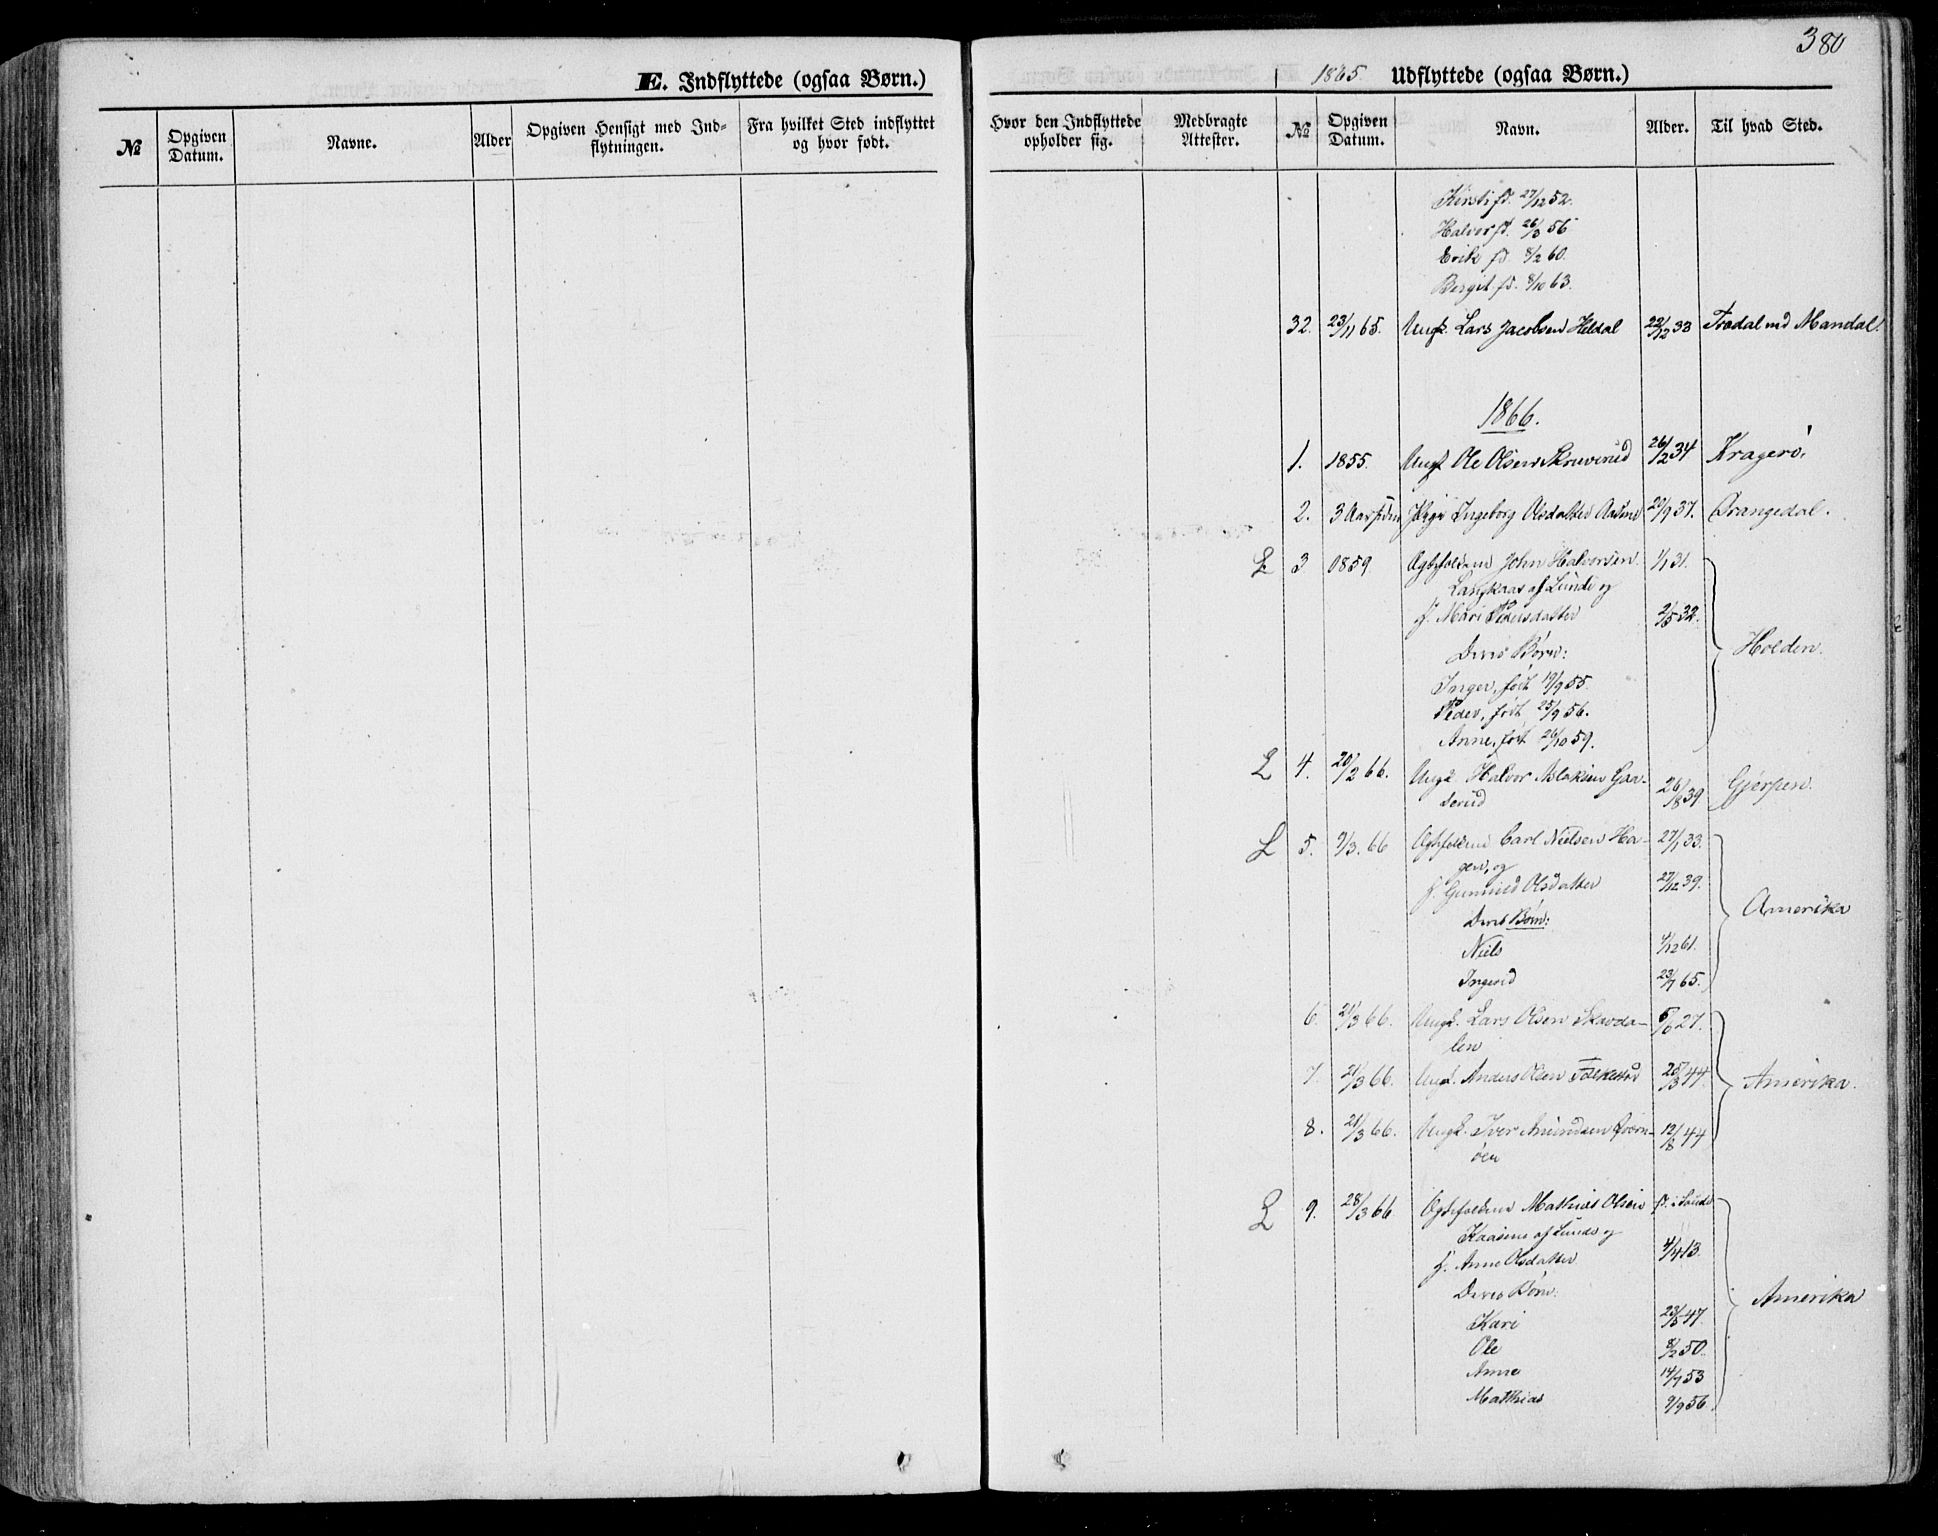 380
E. Indflyttede (ogsaa Børn.)
1865. Udflyttede (ogsaa Børn.)
№ Opgiven Datum. Navne. Alder Opgiven Hensigt med Ind-flytningen. Fra hvilket Sted indflyttet og hvor født.
Hvor den Indflyttede opholder sig. Medbragte Attester. № Opgiven Datum. Navn. Alder. Til hvad Sted.
Kirsti f. 27/12 52.
Halvor f. 26/3 56
Erik f. 8/2 60.
Bergit f. 8/10 63.
32. 23/11 65. Ungk. Lars Jacobsen Heldal 22/12 33 Mandal.
1866.
1. 1855. Ungk. Ole Olsen Skruverud 26/2 34 Kragerø.
2. 3 Aar siden Pige Ingeborg Olsdatter 20/9 37. Drangedal.
L 3 1859 Gbrfolkene John Halvorsen 1/1 31.
Langkaas af Lunde og
h. Mari Pedersdatter 2/5 32.
Deres Børn: Holden.
Inger, født 19/9 55.
Peder, født 25/9 56.
Anne, født 26/10 59.
L 4. 20/2 66. Ungk. Halvor Aslaksen Gaa-
serud 26/8 39 Gjerpen.
L 5. 9/3. 66 Ægtefolkene Carl Nielsen Ha- 27/1 33.
gen, og
h. Gunnild Olsdatter 27/12 39.
Deres Børn: Amerika
Niels 4/12 61.
Ingerid 23/7 65.
6. 21/3 66. Ungk. Lars Olsen Skavda- 5/6 27.
len
7. 21/3 66. Ungk. Anders Olsen Folkestad 25/3 44. Amerika.
8. 21/3 66. Ungk. Iver Amundsen Qværn- 12/8 44
øen
L 9. 28/3 66 Ægtefolkene Mathias Olsen f. i Lunde
Kaasene af Lunde og
h. Anne Olsdatter 4/4 13.
Deres Børn: Amerika
Kari 23/5 47.
Ole 8/2 50.
Anne 14/7 53
Mathias 9/9 56.